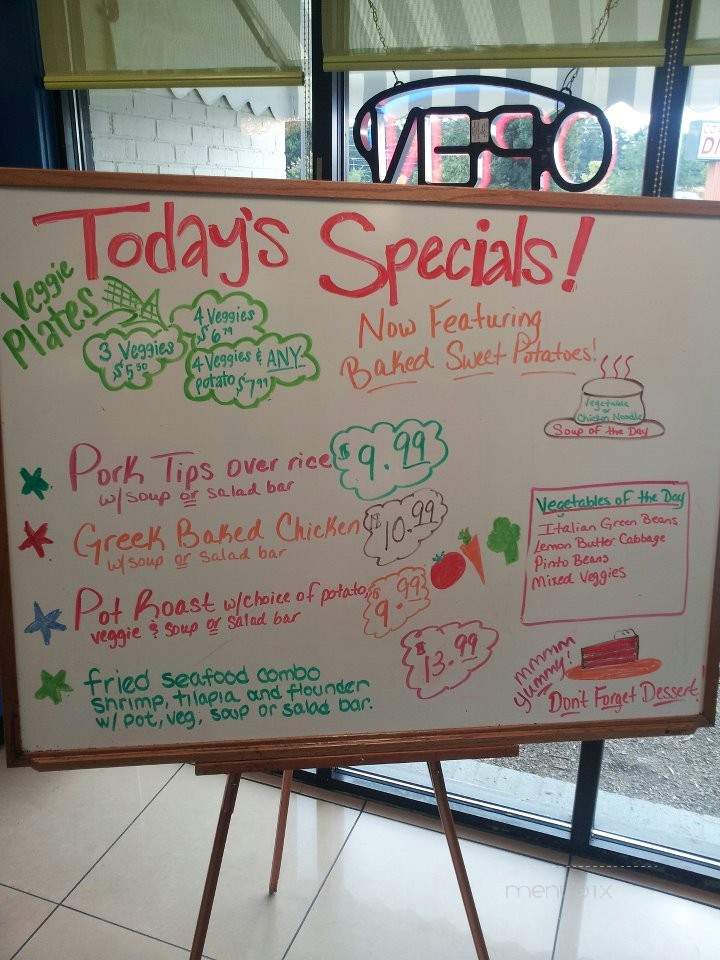 OPEN
DI
Today's Specials!
Veggie
Plates
3 Veggies
$5.50
4 Veggies
$6.79
4 Veggies & ANY
potato $7.99
Now Featuring
Baked Sweet Potatoes!
Vegetable
or
Chicken Noodle
Soup of the Day
Pork Tips over rice $9.99
w/soup or salad bar
Greek Baked Chicken $10.99
w/soup or salad bar
Pot Roast w/choice of potato, $9.99
veggie & soup or salad bar
fried seafood combo $13.99
shrimp, tilapia and flounder
w/ pot, veg, soup or salad bar.
Vegetables of the Day
Italian Green Beans
Lemon Butter Cabbage
Pinto Beans
Mixed Veggies
mmmm
yummy!
Don't Forget Dessert!
menupix